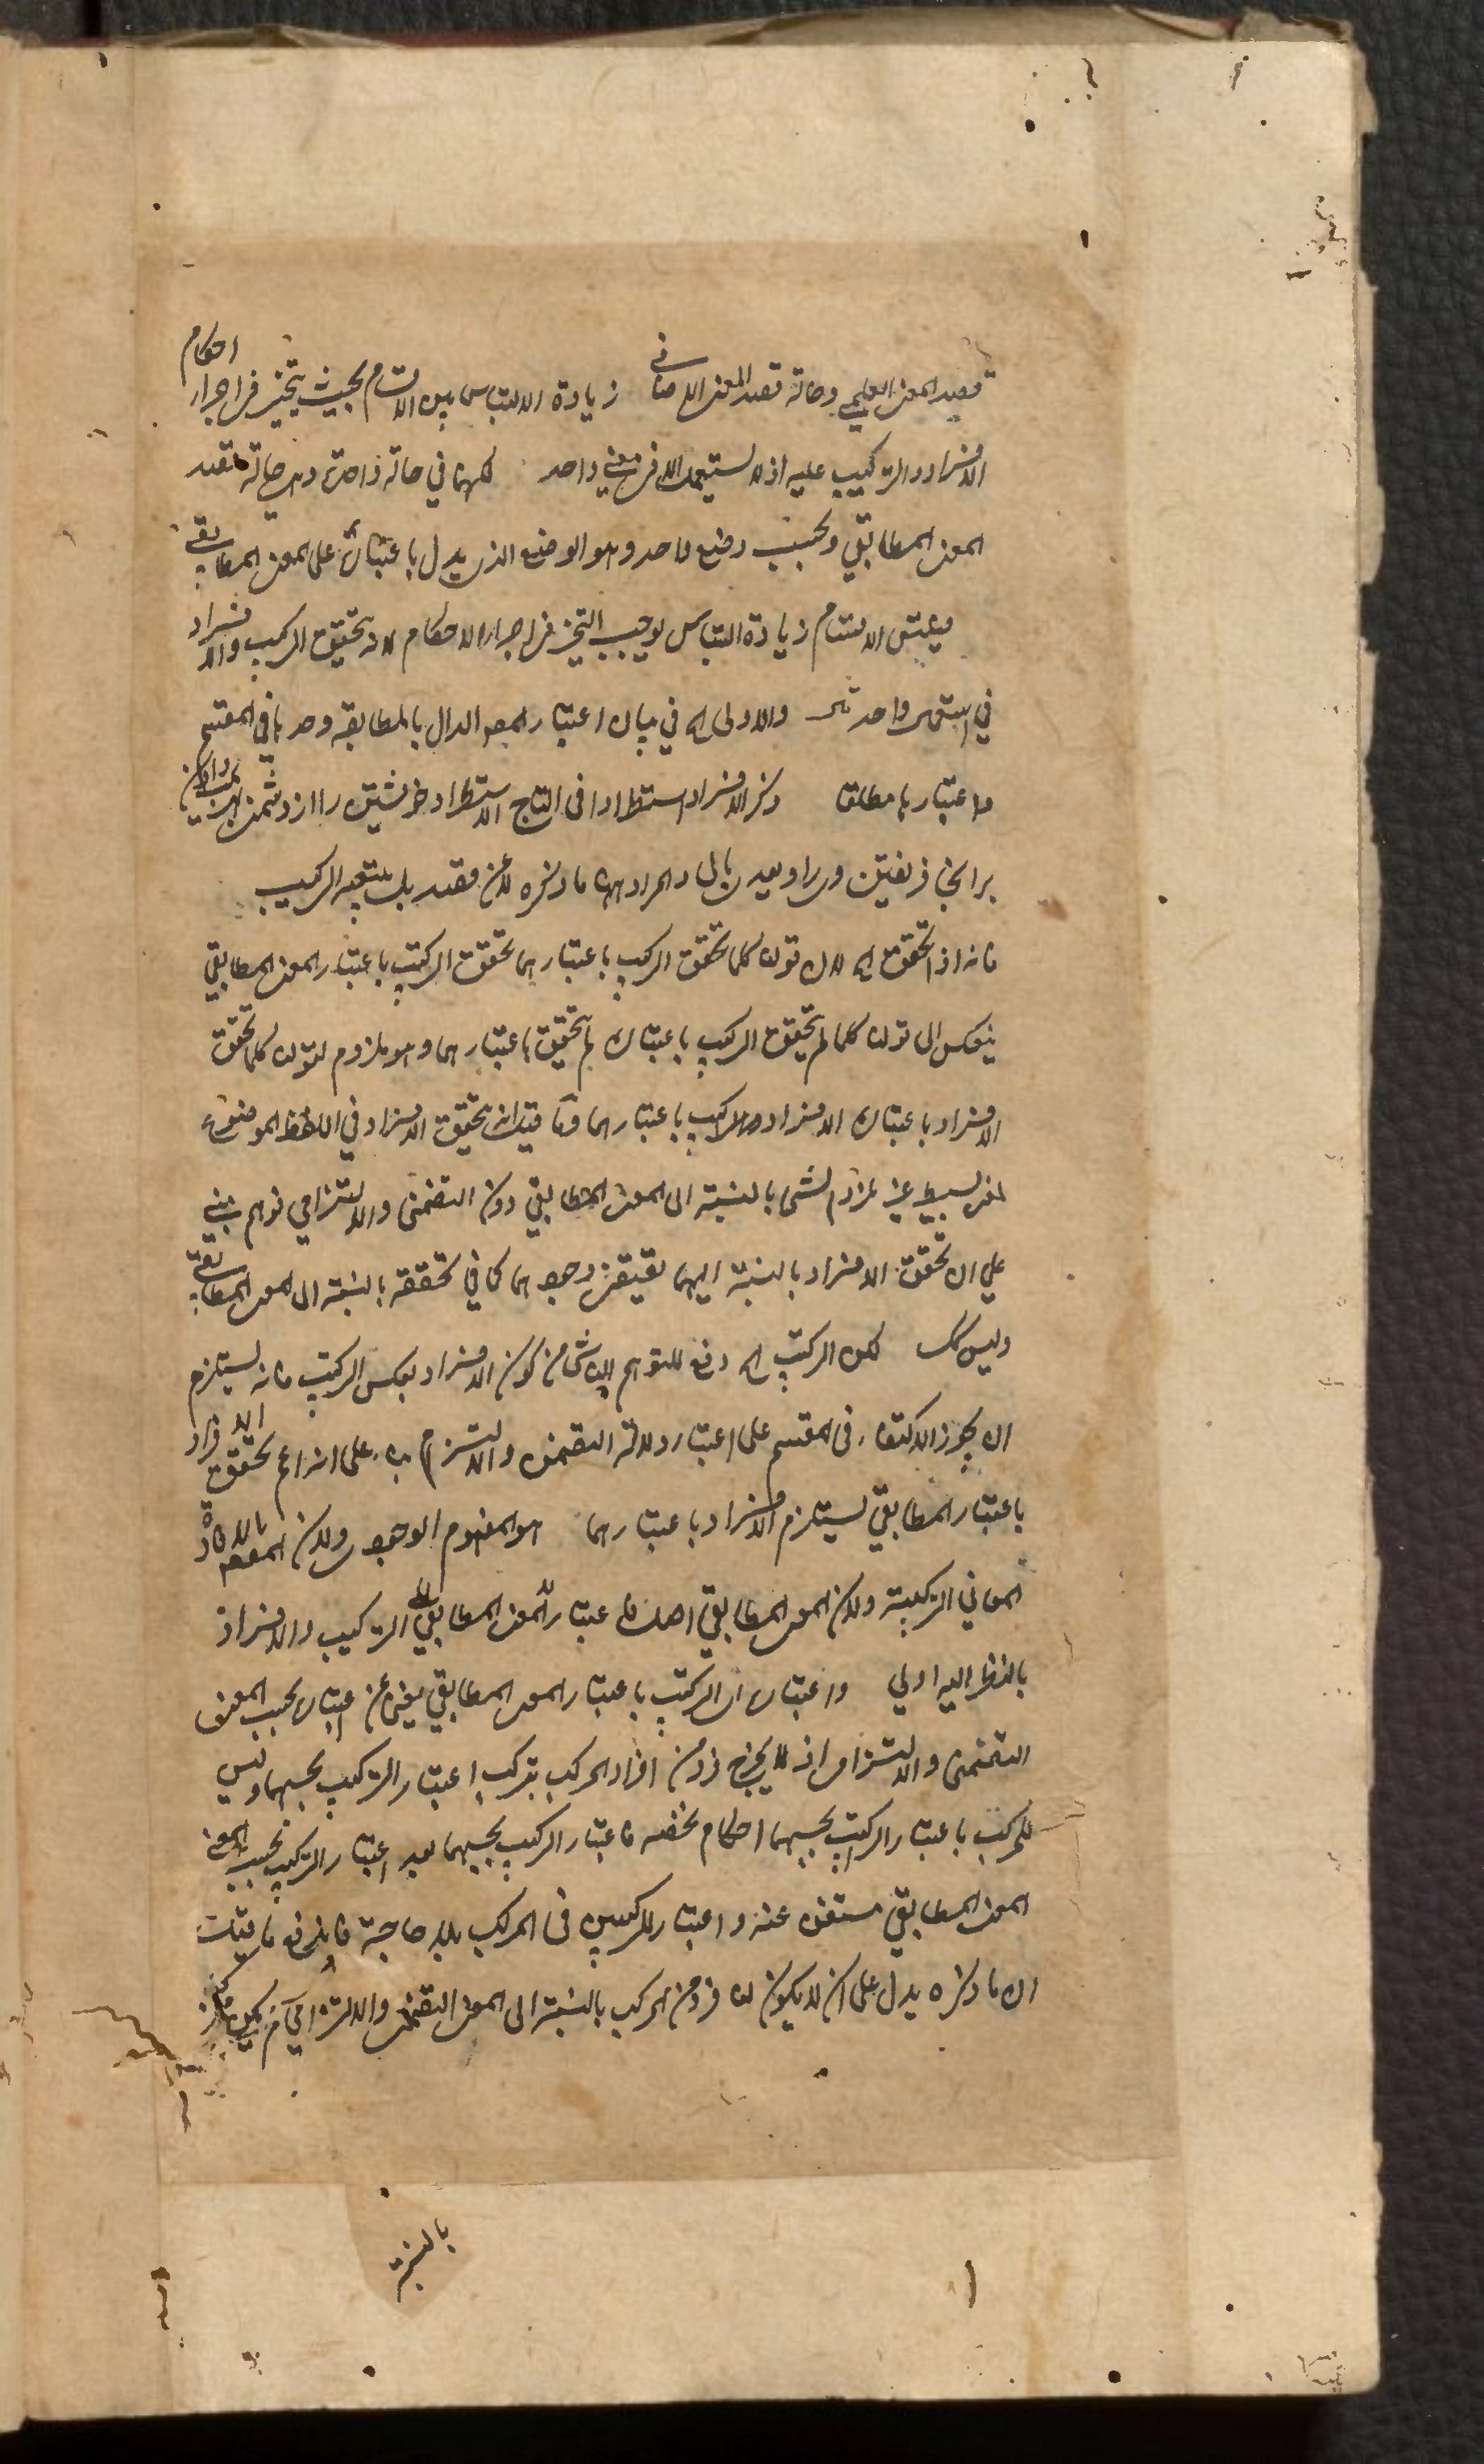 قصد المعنى العلمي وحالة قصد المعنى الاضافي زيادة الالتباس بين الاقسام بحيث يتحير في اجراء احكام
الافراد والتركيب عليه اذ لا يستعمل الا في معنى واحد لكنها في حالة واحدة وهي حالة قصد
المعنى المطابقي وبحسب وضع واحد وهو الوضع الذي يدل باعتباره على المعنى المطابقي
الاقسام زيادة التباس يوجب التحير في اجراء الاحكام لانه تحقيق التركيب والافراد
في واحد والاولى اه في بيان اعتبار الدال بالمطابقة وحدها في المقسم
واعتبارها مطلقا وذكر الافراد استطرادا في التاج الاستطراد خويشتن را از دشمن
برا وبعدى بالباء والمراد ههنا ما ذكره لا عن قصد بل بتبعية التركيب
فانه اذا تحقق اه لان قولنا كلما تحقق التركيب باعتبارهما تحقق التركيب باعتبار المعنى المطابقي
ينعكس الى قولنا كلما لم يتحقق التركيب باعتباره لم يتحقق باعتبارهما وهو ملزوم لقولنا كلما تحقق
الافراد باعتباره الافراد باعتبارهما وما قيل انه تحقيق الافراد في اللفظ الموضوع
لمعنى بسيط غير ملزوم لشئ بالنسبة الى المعنى المطابقي دون التضمني والالتزامي توهم مبني
على ان تحقق الافراد بالنسبة اليهما يقتضي وجودهما كما في تحققه بالنسبة الى المعنى المطابقي
وليس كك لكن التركيب اه دفع للتوهم الناشئ من كون الافراد بعكس التركيب فانه يستلزم
ان يجوز الاكتفاء في المقسم على اعتبار دلالة التضمن والالتزام بناء على انه اعم تحقق الافراد
باعتبار المطابقي يستلزم الافراد باعتبارهما هو المفهوم الوجودي ولان المقصود بالافادة
المعاني التركيبية ولان المعنى المطابقي اصل فاعتبار المعنى المطابقي التركيب والافراد
بالنظر اليه اولى واعتباره ان التركيب باعتبار المعنى المطابقي مغن عن اعتباره بحسب المعنى
التضمني والالتزامي اذ لا يخرج فرد من افراد المركب بترك اعتبار التركيب بحسبهما وليس
للمركب باعتبار التركيب بحسبهما احكام مختصة فاعتبار التركيب بحسبهما بعد اعتبار التركيب بحسب المعنى
المعنى المطابقي مستغنى عنه واعتبار للتركيبين في المركب بلا حاجة فاندفع ما قيل
ان ما ذكره يدل على ان لا يكون لنا فرد من المركب بالنسبة الى المعنى التضمني والالتزامي
بالنسبة